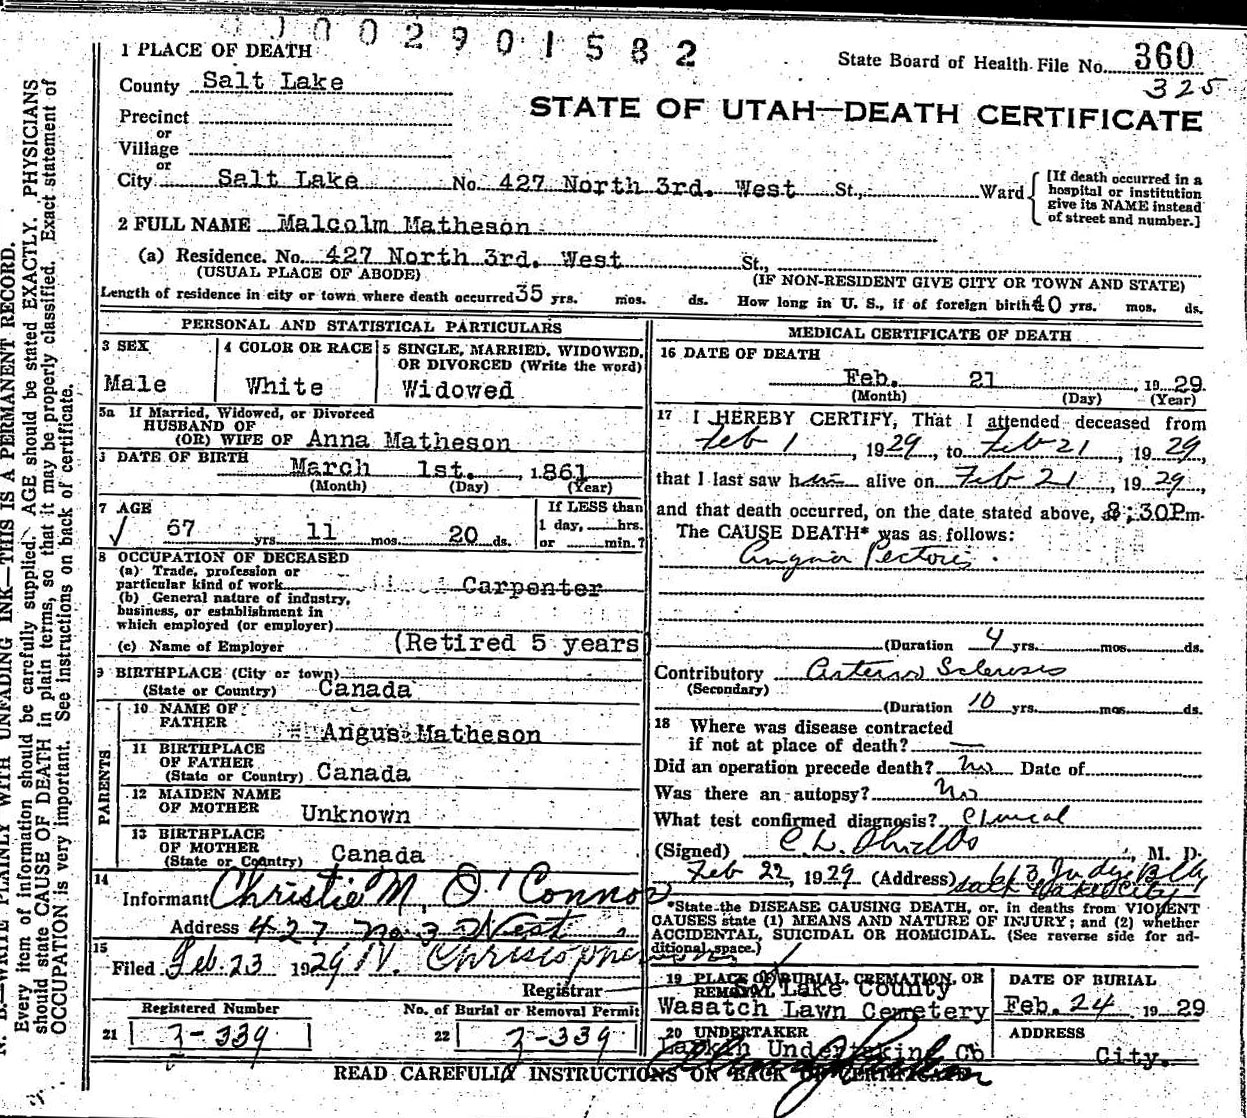 0002901582
1 PLACE OF DEATH
State Board of Health File No. 360
325
County Salt Lake
STATE OF UTAH—DEATH CERTIFICATE
Precinct
or
Village
or
City Salt Lake No. 427 North 3rd. West St., Ward
[If death occurred in a
hospital or institution
give its NAME instead
of street and number.]
2 FULL NAME Malcolm Matheson
(a) Residence. No. 427 North 3rd. West St.,
(USUAL PLACE OF ABODE) (IF NON-RESIDENT GIVE CITY OR TOWN AND STATE)
Length of residence in city or town where death occurred 35 yrs. mos. ds. How long in U. S., if of foreign birth 40 yrs. mos. ds.
PERSONAL AND STATISTICAL PARTICULARS
3 SEX
Male
4 COLOR OR RACE
White
5 SINGLE, MARRIED, WIDOWED,
OR DIVORCED (Write the word)
Widowed
5a If Married, Widowed, or Divorced
HUSBAND OF
(OR) WIFE OF Anna Matheson
DATE OF BIRTH
March 1st. , 1861
(Month) (Day) (Year)
7 AGE
67 yrs. 11 mos. 20 ds.
If LESS than
1 day, hrs.
or min.?
8 OCCUPATION OF DECEASED
(a) Trade, profession or
particular kind of work Carpenter
(b) General nature of industry,
business, or establishment in
which employed (or employer)
(c) Name of Employer (Retired 5 years
9 BIRTHPLACE (City or town)
(State or Country) Canada
PARENTS
10 NAME OF
FATHER Angus Matheson
11 BIRTHPLACE
OF FATHER
(State or Country) Canada
12 MAIDEN NAME
OF MOTHER Unknown
13 BIRTHPLACE
OF MOTHER
(State or Country) Canada
14
Informant Christie M. O'Connor
Address 427 No 3 West
15
Filed Feb. 23 1929
Registrar
Registered Number
21 3-339
No. of Burial or Removal Permit
22 3-339
MEDICAL CERTIFICATE OF DEATH
16 DATE OF DEATH
Feb. 21 , 1929
(Month) (Day) (Year)
17 I HEREBY CERTIFY, That I attended deceased from
Feb 1 , 1929, to Feb 21, 1929,
that I last saw him alive on Feb 21 , 1929,
and that death occurred, on the date stated above, 8:30P m.
The CAUSE DEATH* was as follows:
Angina Pectoris.
(Duration 4 yrs. mos. ds.
Contributory Arterio Sclerosis
(Secondary)
(Duration 10 yrs. mos. ds.
18 Where was disease contracted
if not at place of death? —
Did an operation precede death? no Date of
Was there an autopsy? No
What test confirmed diagnosis? Clinical
(Signed) C. L. Shields , M. D.
Feb 22, 1929 (Address) 613 Judge Bldg
Salt Lake City
*State the DISEASE CAUSING DEATH, or, in deaths from VIOLENT
CAUSES state (1) MEANS AND NATURE OF INJURY; and (2) whether
ACCIDENTAL, SUICIDAL OR HOMICIDAL. (See reverse side for ad-
ditional space.)
19 PLACE OF BURIAL, CREMATION, OR
REMOVAL Lake County
Wasatch Lawn Cemetery
DATE OF BURIAL
Feb. 24 1929
20 UNDERTAKER
Larkin Undertaking Co
ADDRESS
City.
READ CAREFULLY INSTRUCTIONS ON BACK OF CERTIFICATE
N. B.—WRITE PLAINLY WITH UNFADING INK—THIS IS A PERMANENT RECORD.
Every item of information should be carefully supplied. AGE should be stated EXACTLY. PHYSICIANS
should state CAUSE OF DEATH in plain terms, so that it may be properly classified. Exact statement of
OCCUPATION is very important. See instructions on back of certificate.